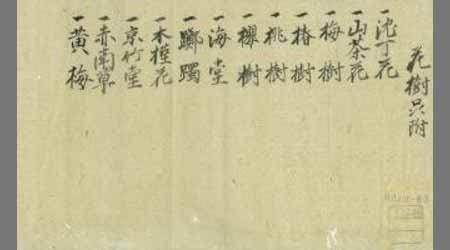 花樹附
一沈丁花
一山茶花
一梅樹
一椿樹
一桃樹
一櫻樹
一海堂
一躑躅
一木槿花
一京竹堂
一赤南草
一黄梅